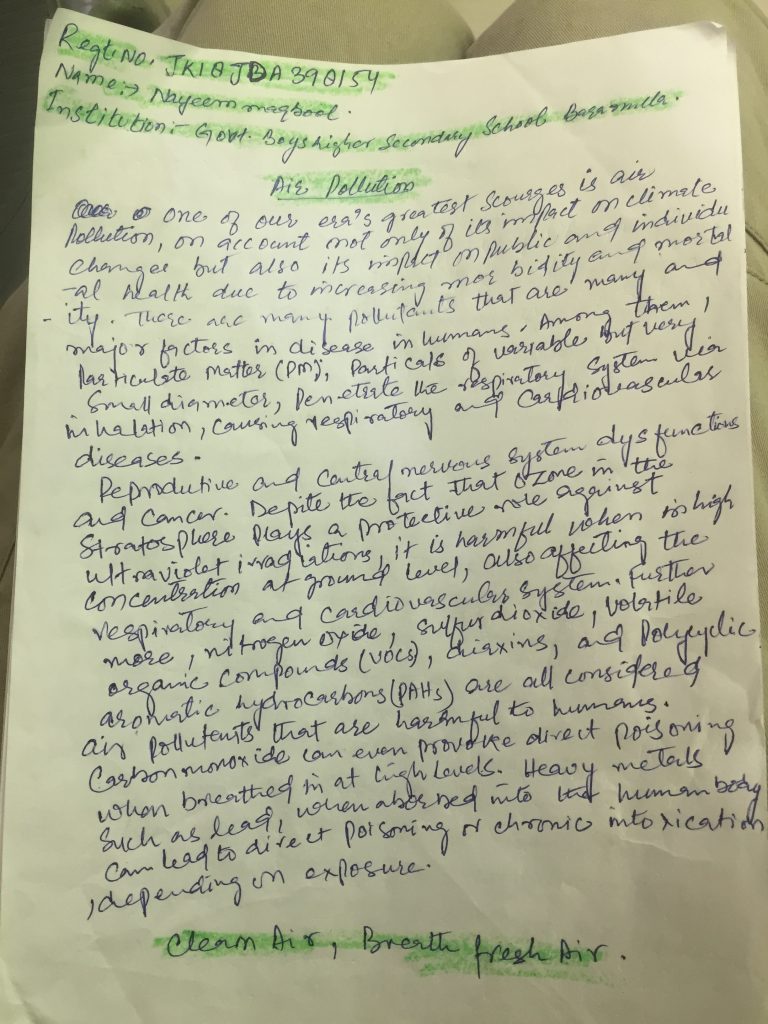 Regt.No. JK18JDA390154
Name:→ Nayeem maqbool.
Institution:- Govt. Boys higher Secondary School Baramulla.
Air Pollution
one of our era's greatest Scourges is air
Pollution, on account not only of its impact on climate
changes but also its impact on public and individu
-al health due to increasing mor bidity and mortal
- ity. There are many pollutants that are many and
major factors in disease in humans. Among them,
Particulate matter (PM), Particals of variable But very,
Small diameter, Penetrate the respiratory System via
in halation, causing respiratory and Cardiovascular
diseases.
Reprodutive and central nervous system dysfunctions
and cancer. Depite the fact that Ozone in the
Stratosphere Plays a protective role against
ultraviolet irradiations, it is harmful when in high
concentration at ground level, also affecting the
respiratory and cardiovascular system. Further
more, nitrogen oxide, sulfur dioxide, volatile
organic compounds (VOCs), dioxins, and Polycyclic
aromatic hydrocarbons (PAHs) are all considered
air Pollutents that are harmful to humans.
Carbon monoxide can even provoke direct poisoning
when breathed in at high levels. Heavy metals
Such as lead, when absorbed into the human body
can lead to direct Poisoning or chronic intoxication
, depending on exposure.
Clean Air, Breath fresh Air.